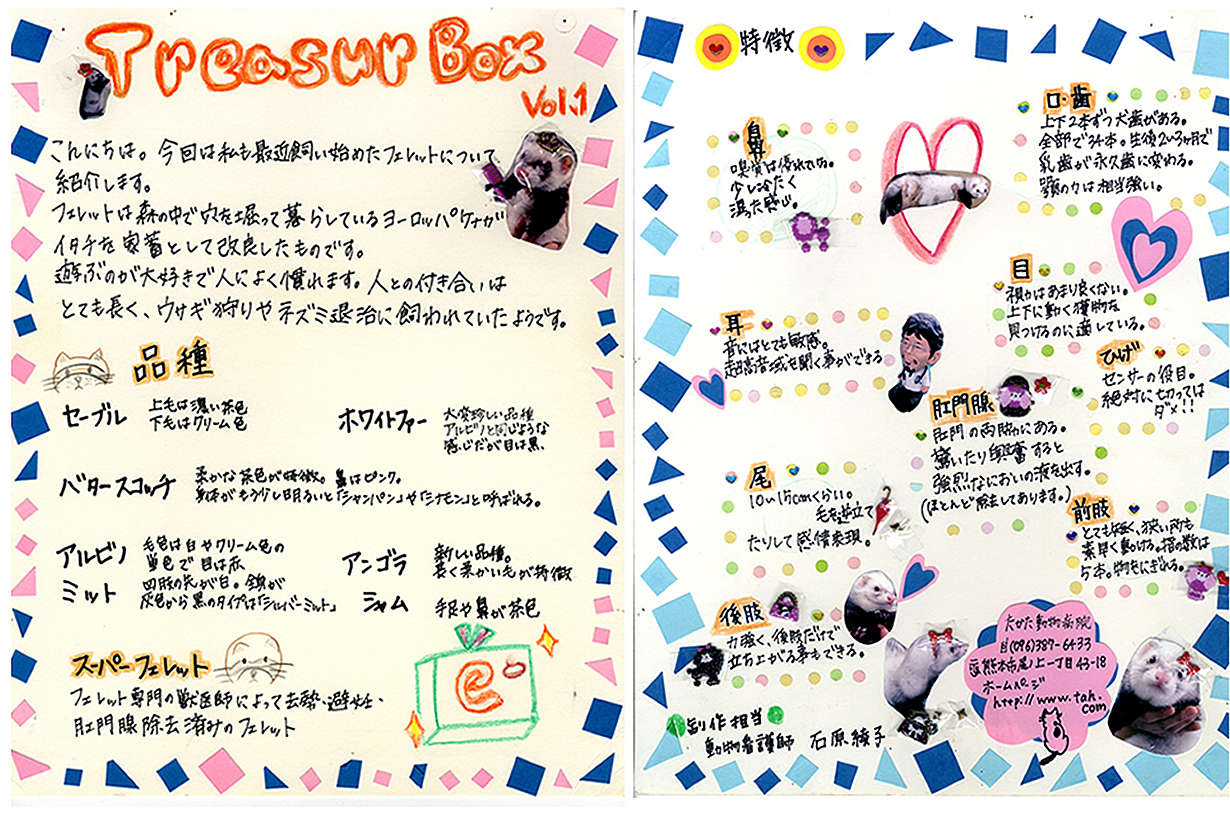 Treasur Box
Vol.1
こんにちは。今回は私も最近飼い始めたフェレットについて
紹介します。
フェレットは森の中で穴を掘って暮らしているヨーロッパケナガ
イタチを家畜として改良したものです。
遊ぶのが大好きで人によく慣れます。人との付き合いは
とても長く、ウサギ狩りやネズミ退治に飼われていたようです。
品種
セーブル
上毛は濃い茶色
下毛はクリーム色
ホワイトファー
大変珍しい品種
アルビノと同じような
感じだが目は黒。
バタースコッチ
柔かな茶色が特徴。鼻はピンク。
もう少し明るいと「シャンパン」や「シナモン」と呼ばれる。
アルビノ
毛色は白やクリーム色の
単色で目は赤
アンゴラ
新しい品種。
長く柔かい毛が特徴
ミット
四肢の先が白。
灰色から黒のタイプは「シルバーミット」
シャム
手足や鼻が茶色
スーパーフェレット
フェレット専門の獣医師によって去勢・避妊・
肛門腺除去済みのフェレット
e
特徴
鼻
嗅覚は優れている。
少し冷たく
湿った感じ。
口・歯
上下2本ずつ犬歯がある。
全部で34本。生後2ヶ月で
乳歯が永久歯に変わる。
顎の力は相当強い。
目
視力はあまり良くない。
上下に動く獲物を
見つけるのに適している。
耳
音にはとても敏感。
超高音域を聞く事ができる
ひげ
センサーの役目。
絶対に切っては
ダメ!!
肛門腺
肛門の両脇にある。
驚いたり興奮すると
強烈なにおいの液を出す。
(ほとんど除去してあります。)
尾
10〜15cmくらい。
毛を逆立て
たりして感情表現。
前肢
とても短く、狭い所も
素早く動ける。指の数は
5本。物をにぎれる。
後肢
力強く、後肢だけで
立ち上がる事もできる。
たかた動物病院
(096)389-6433
熊本市尾ノ上一丁目43-18
ホームページ
http://www.tah.
com
制作相当
動物看護師 石原綾子